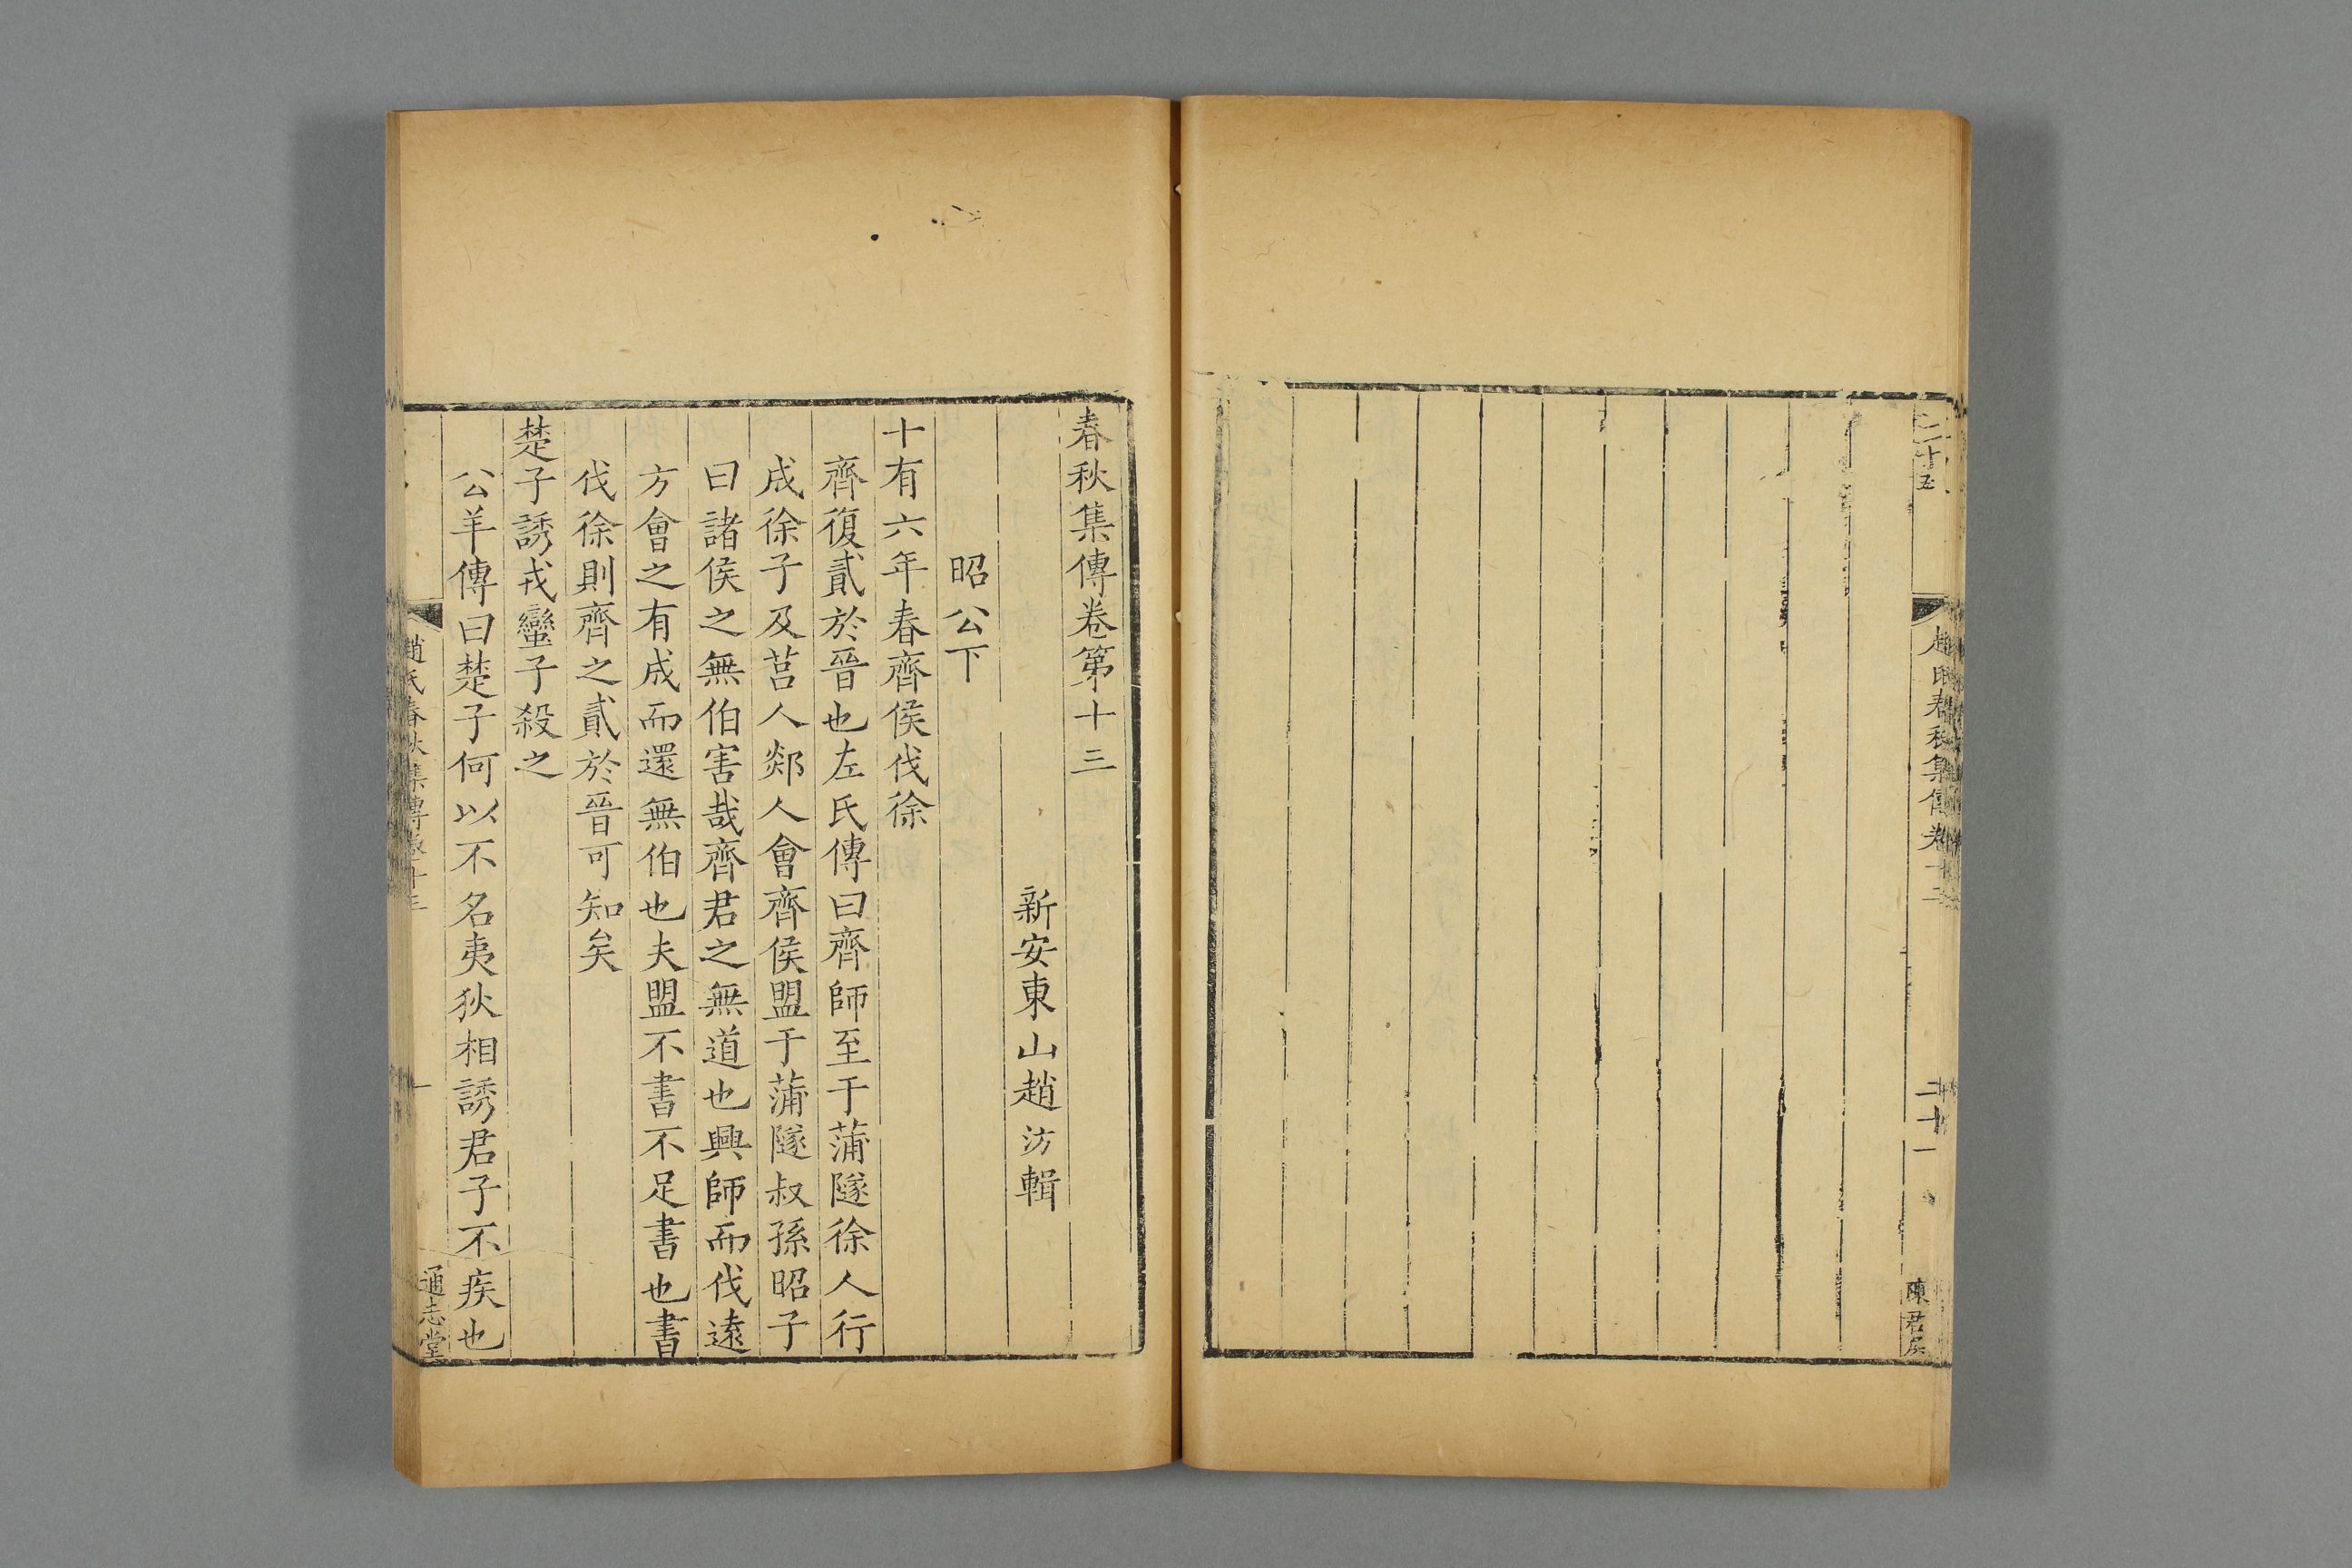 二十五
趙氏春秋集傳卷十二
二十一
陳君
春秋集傳卷第十三
新安東山趙汸輯
昭公下
十有六年春齊侯伐徐
齊復貳於晉也左氏傳曰齊師至于蒲隧徐人行
成徐子及莒人郯人會齊侯盟于蒲隧叔孫昭子
曰諸侯之無伯害哉齊君之無道也興師而伐遠
方會之有成而還無伯也夫盟不書不足書也書
伐徐則齊之貳於晉可知矣
楚子誘戎蠻子殺之
公羊傳曰楚子何以不名夷狄相誘君子不疾也
趙氏春秋集傳卷十三
一
通志堂